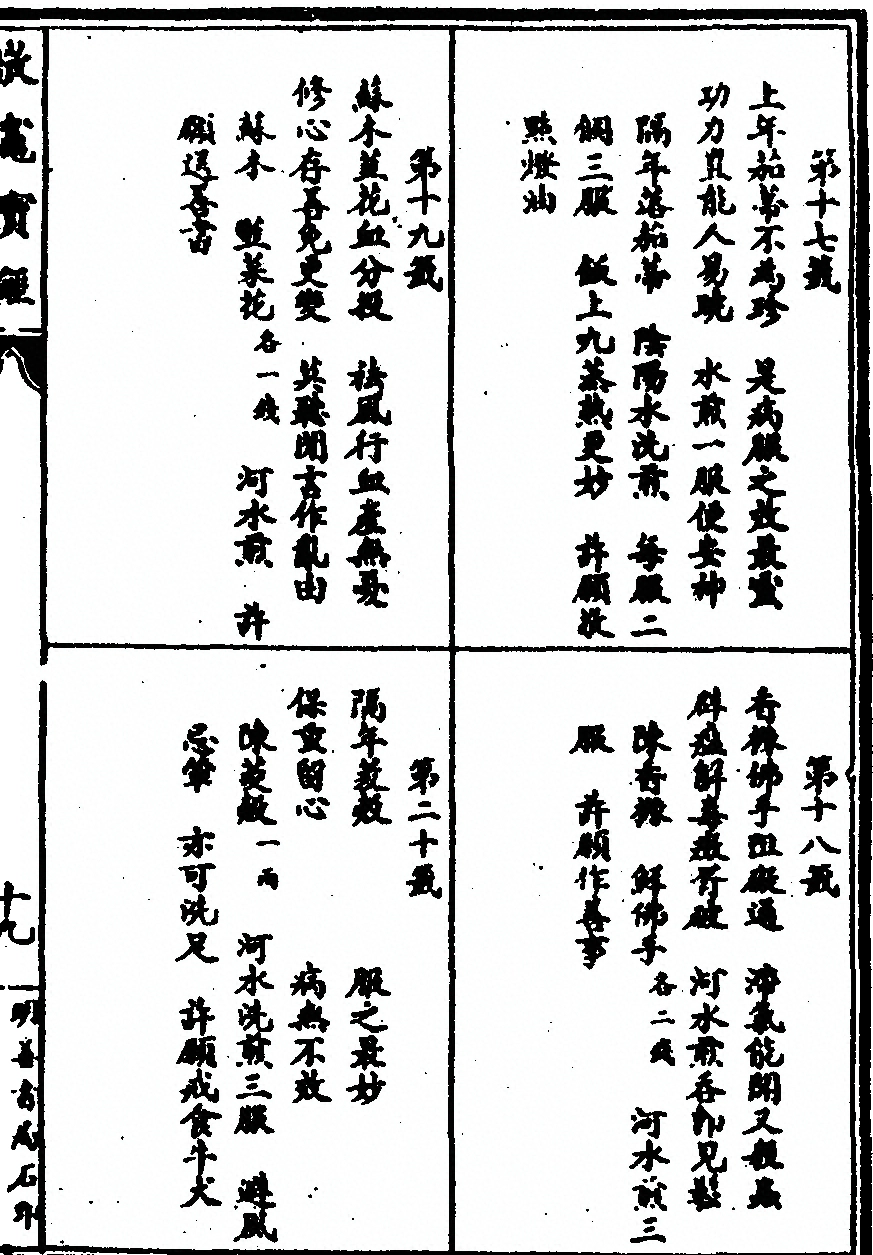 第十七籤
上年茄蒂不為珍　是病服之效最靈
功力豈能人易曉　水煎一服便安神
隔年落茄蒂　陰陽水洗煎　每服二
個三服　飯上九蒸熱更妙　許願敬
點燈油
第十八籤
香櫞佛手阻礙通　滯氣能開又殺蟲
辟瘟解毒癥芥破　河水煎吞即見鬆
陳香櫞　鮮佛手　各二錢　河水煎三
服　許願作善事
第十九籤
蘇木藍花血分投　祛風行血產無憂
修心存善免更變　莫聽閒言作亂由
蘇木　藍菜花　各一錢　河水煎　許
願送善書
第二十籤
隔年菱殼　服之最妙
保重留心　病無不效
陳菱殼　一兩　河水洗煎三服　避風
忌葷　亦可洗足　許願戒食牛犬
敬竈寶經
十九
明善書局石印